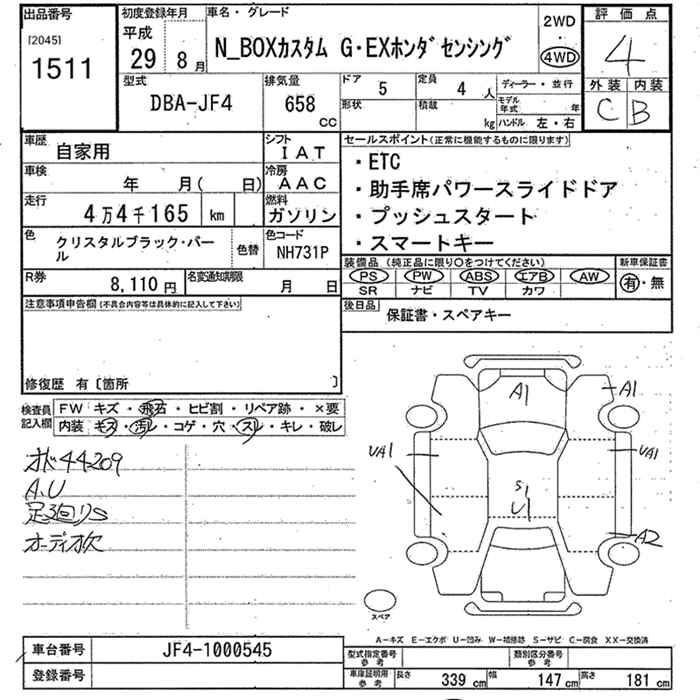 出品番号
[2045]
1511
初度登録年月
平成
29 8月
車名・グレード
N_BOXカスタム G・EXホンダセンシング
2WD
4WD
評価点
4
外装 内装
C B
型式
DBA-JF4
排気量
658
CC
ドア 5
定員 4 人
形状
積載 kg
ディーラー・並行
モデル年式 年
ハンドル 左・右
車歴
自家用
シフト
IAT
車検
年 月( 日)
冷房
AAC
走行
4万4千165 km
燃料
ガソリン
色
クリスタルブラック・パール
色替
色コード
NH731P
R券
8,110円
名変通知期限
月 日
セールスポイント(正常に機能するものに限ります)
・ETC
・助手席パワースライドドア
・プッシュスタート
・スマートキー
装備品(純正品に限り○をつけてください)
PS PW ABS エアB AW
SR ナビ TV カワ
新車保証書
有・無
後日品
保証書・スペアキー
注意事項申告欄(不具合内容等は具体的に記入して下さい)
修復歴 有〔箇所 〕
検査員記入欄
FW キズ・飛石・ヒビ割・リペア跡・×要
内装 キズ・汚レ・コゲ・穴・スレ・キレ・破レ
オド44209
A.U
足廻りS
オーディオ欠
A1
A1
UA1
UA1
S1
U1
A2
スペア
A-キズ E-エクボ U-凹み W-補修跡 S-サビ C-腐食 XX-交換済
車台番号
JF4-1000545
登録番号
型式指定番号
参考
類別区分番号
参考
車庫証明用
参考
長さ 339 cm 幅 147 cm 高さ 181 cm